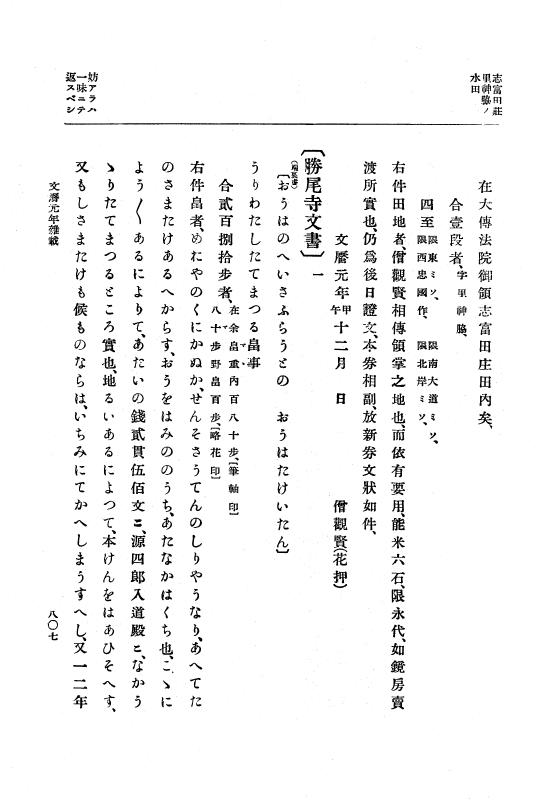 志富田莊
里神脇ノ
水田
妨アラハ
一味ニテ
返スベシ
在大傳法院御領志富田庄田內矣、
合壹段者、字里神脇、
四至限東ミソ、限南大道ミソ、
限西忠國作、限北岸ミソ、
右件田地者、僧觀賢相傳領掌之地也、而依有要用、能米六石、限永代、如鏡房賣
渡所實也、仍爲後日證文、本券相副、放新券文狀如件、
文曆元年甲午十二月 日 僧觀賢(花押)
〔勝尾寺文書〕一
〔おうはのへいさふらうとの おうはたけいたん〕
うりわたしたてまつる畠事
合貳百捌拾步者、在余畠重內百八十步、〔筆軸印〕
八十步野畠百步、〔略花印〕
右件畠者、めたやのくにかぬか、せんそさうてんのしりやうなり、あへてた
のさまたけあるへからす、おうをはみののうち、あたなかはくち也、こゝに
よう〳〵あるによりて、あたいの錢貳貫伍佰文ニ、源四郞入道殿ニ、なかう
ゝりたてまつるところ實也、地るいあるによつて、本けんをはあひそへす、
又もしさまたけも候ものならは、いちみにてかへしまうすへし、又一二年
文曆元年雜載
八〇七